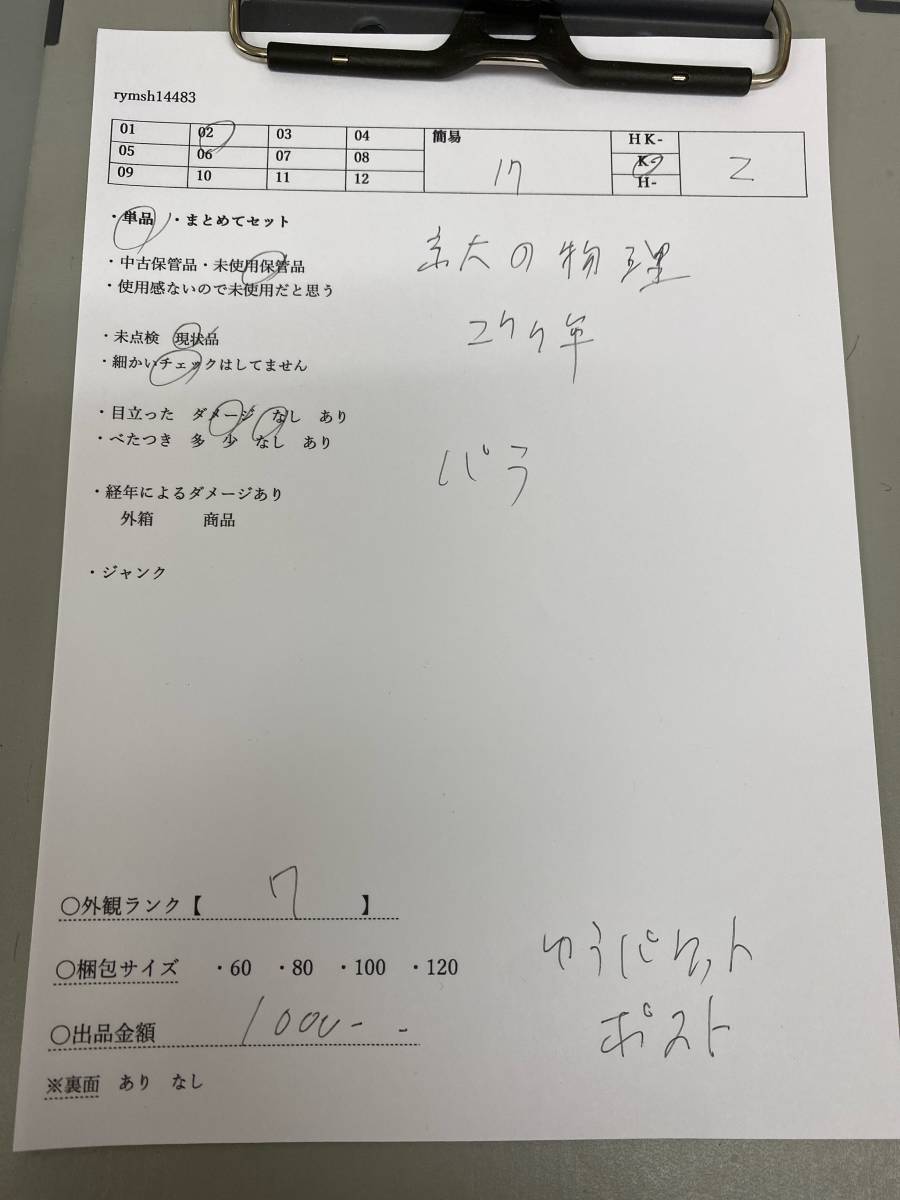 rymsh14483
01 02 03 04 簡易 HK-
05 06 07 08 17 K- Z
09 10 11 12 H-
・単品 ・まとめてセット
京大の物理
・中古保管品・未使用保管品
・使用感ないので未使用だと思う
27ヶ年
・未点検 現状品
・細かいチェックはしてません
・目立った ダメージ なし あり
・べたつき 多 少 なし あり
バラ
・経年によるダメージあり
外箱 商品
・ジャンク
○外観ランク【 7 】
○梱包サイズ ・60 ・80 ・100 ・120
ゆうパケット
ポスト
○出品金額 1000--
※裏面 あり なし